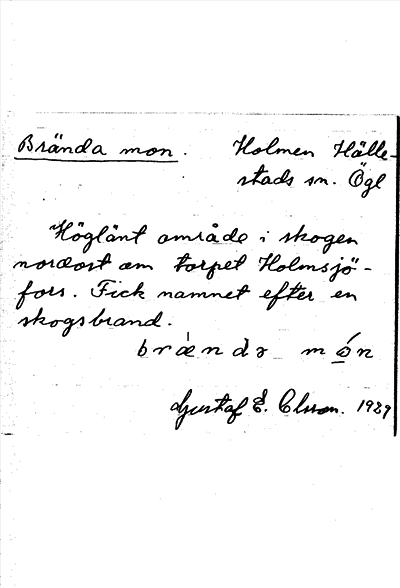 Brända mon. Holmen Hälle-
stads sn. Ögl
Höglänt område i skogen
nordost om torpet Holmsjö-
fors. Fick namnet efter en
skogsbrand.
brænda mɷn
Gustaf E. Olsson. 1929